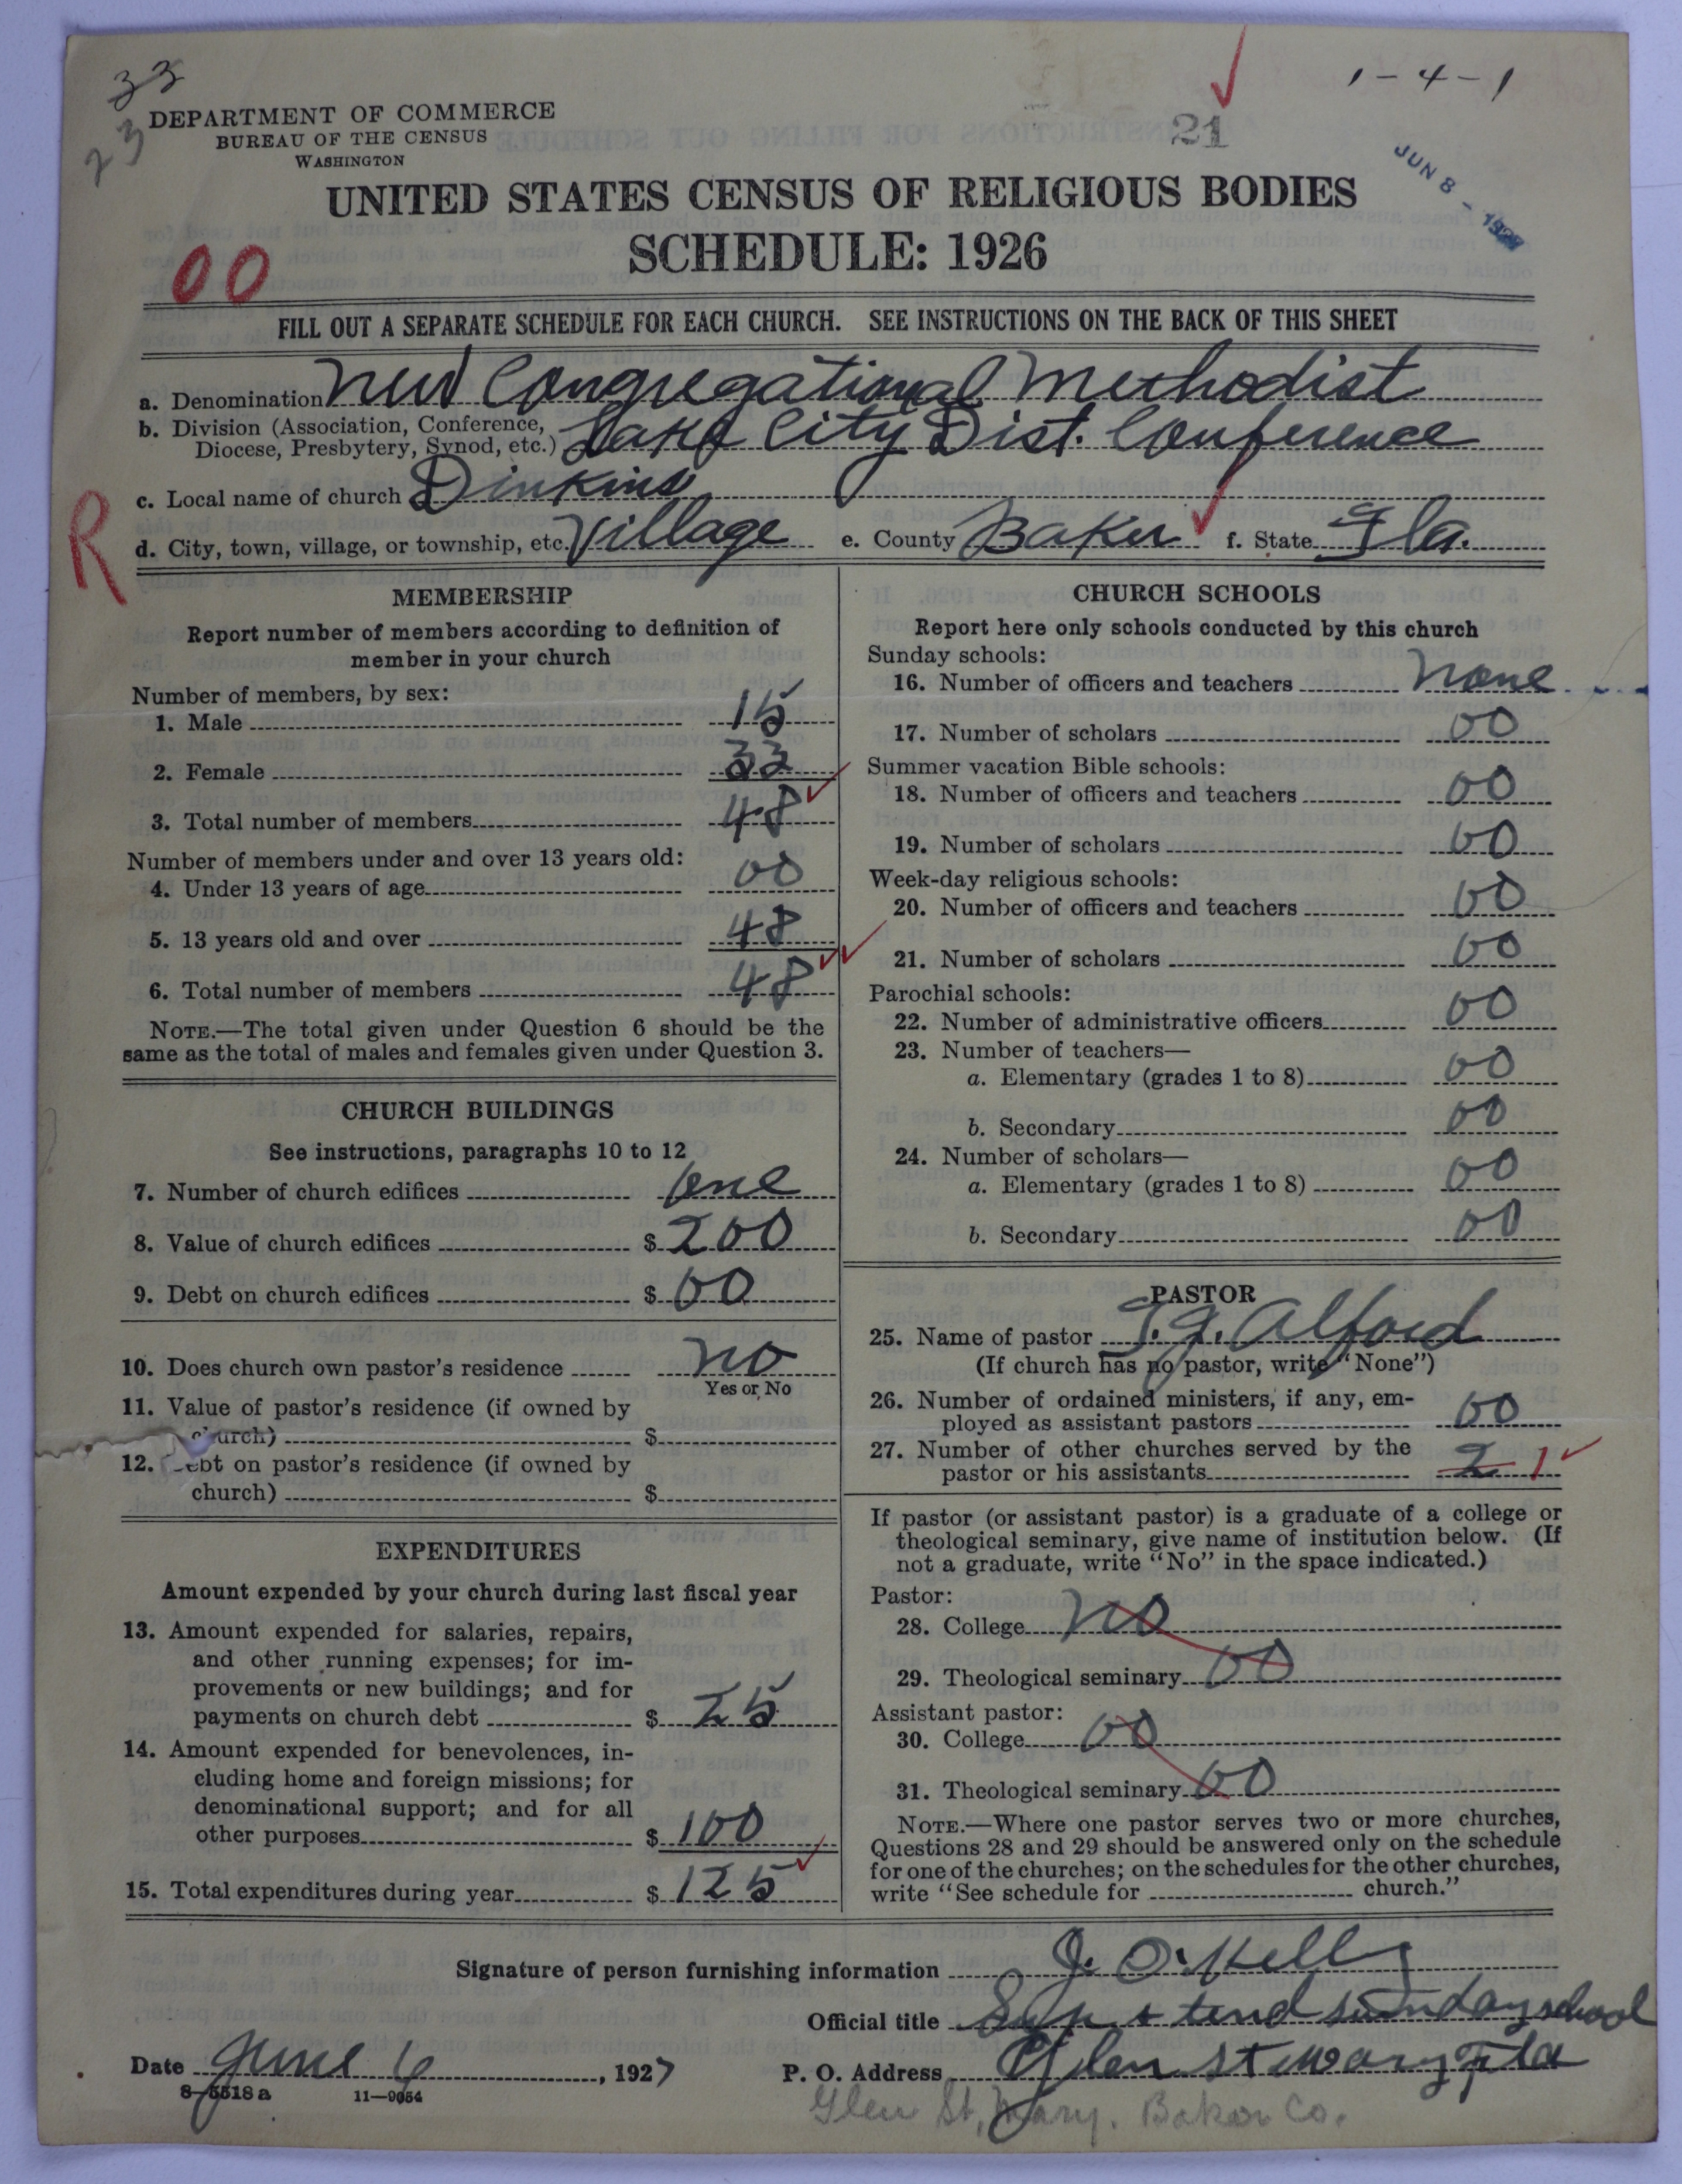 33
23
1-4-1
21
JUN 8 - 1927
DEPARTMENT OF COMMERCE
BUREAU OF THE CENSUS
WASHINGTON
UNITED STATES CENSUS OF RELIGIOUS BODIES
SCHEDULE: 1926
00
FILL OUT A SEPARATE SCHEDULE FOR EACH CHURCH. SEE INSTRUCTIONS ON THE BACK OF THIS SHEET
a. Denomination New Congregational Methodist
b. Division (Association, Conference,
Diocese, Presbytery, Synod, etc.) Lake City Dist. Conference
c. Local name of church Dinkins
R
d. City, town, village, or township, etc. Village e. County Baker f. State Fla.
MEMBERSHIP
Report number of members according to definition of
member in your church
Number of members, by sex:
1. Male 15
2. Female 33
3. Total number of members 48
Number of members under and over 13 years old:
4. Under 13 years of age 00
5. 13 years old and over 48
6. Total number of members 48
NOTE.—The total given under Question 6 should be the
same as the total of males and females given under Question 3.
CHURCH BUILDINGS
See instructions, paragraphs 10 to 12
7. Number of church edifices one
8. Value of church edifices $ 200
9. Debt on church edifices $ 00
10. Does church own pastor's residence no
Yes or No
11. Value of pastor's residence (if owned by
church) $
12. Debt on pastor's residence (if owned by
church) $
EXPENDITURES
Amount expended by your church during last fiscal year
13. Amount expended for salaries, repairs,
and other running expenses; for im-
provements or new buildings; and for
payments on church debt $ 25
14. Amount expended for benevolences, in-
cluding home and foreign missions; for
denominational support; and for all
other purposes $ 100
15. Total expenditures during year $ 125
CHURCH SCHOOLS
Report here only schools conducted by this church
Sunday schools:
16. Number of officers and teachers none
17. Number of scholars 00
Summer vacation Bible schools:
18. Number of officers and teachers 00
19. Number of scholars 00
Week-day religious schools:
20. Number of officers and teachers 00
21. Number of scholars 00
Parochial schools:
22. Number of administrative officers 00
23. Number of teachers—
a. Elementary (grades 1 to 8) 00
b. Secondary 00
24. Number of scholars—
a. Elementary (grades 1 to 8) 00
b. Secondary 00
PASTOR
25. Name of pastor Alford
(If church has no pastor, write "None")
26. Number of ordained ministers, if any, em-
ployed as assistant pastors 00
27. Number of other churches served by the
pastor or his assistants 2 1
If pastor (or assistant pastor) is a graduate of a college or
theological seminary, give name of institution below. (If
not a graduate, write "No" in the space indicated.)
Pastor:
28. College no
29. Theological seminary 00
Assistant pastor:
30. College 00
31. Theological seminary 00
NOTE.—Where one pastor serves two or more churches,
Questions 28 and 29 should be answered only on the schedule
for one of the churches; on the schedules for the other churches,
write "See schedule for church."
Signature of person furnishing information J. O. Kelly
Official title Sup + tend sunday school
Date June 6, 1927 P. O. Address Glen st mary Fla
8-5518 a 11-9054
Glen St. Mary. Baker Co.